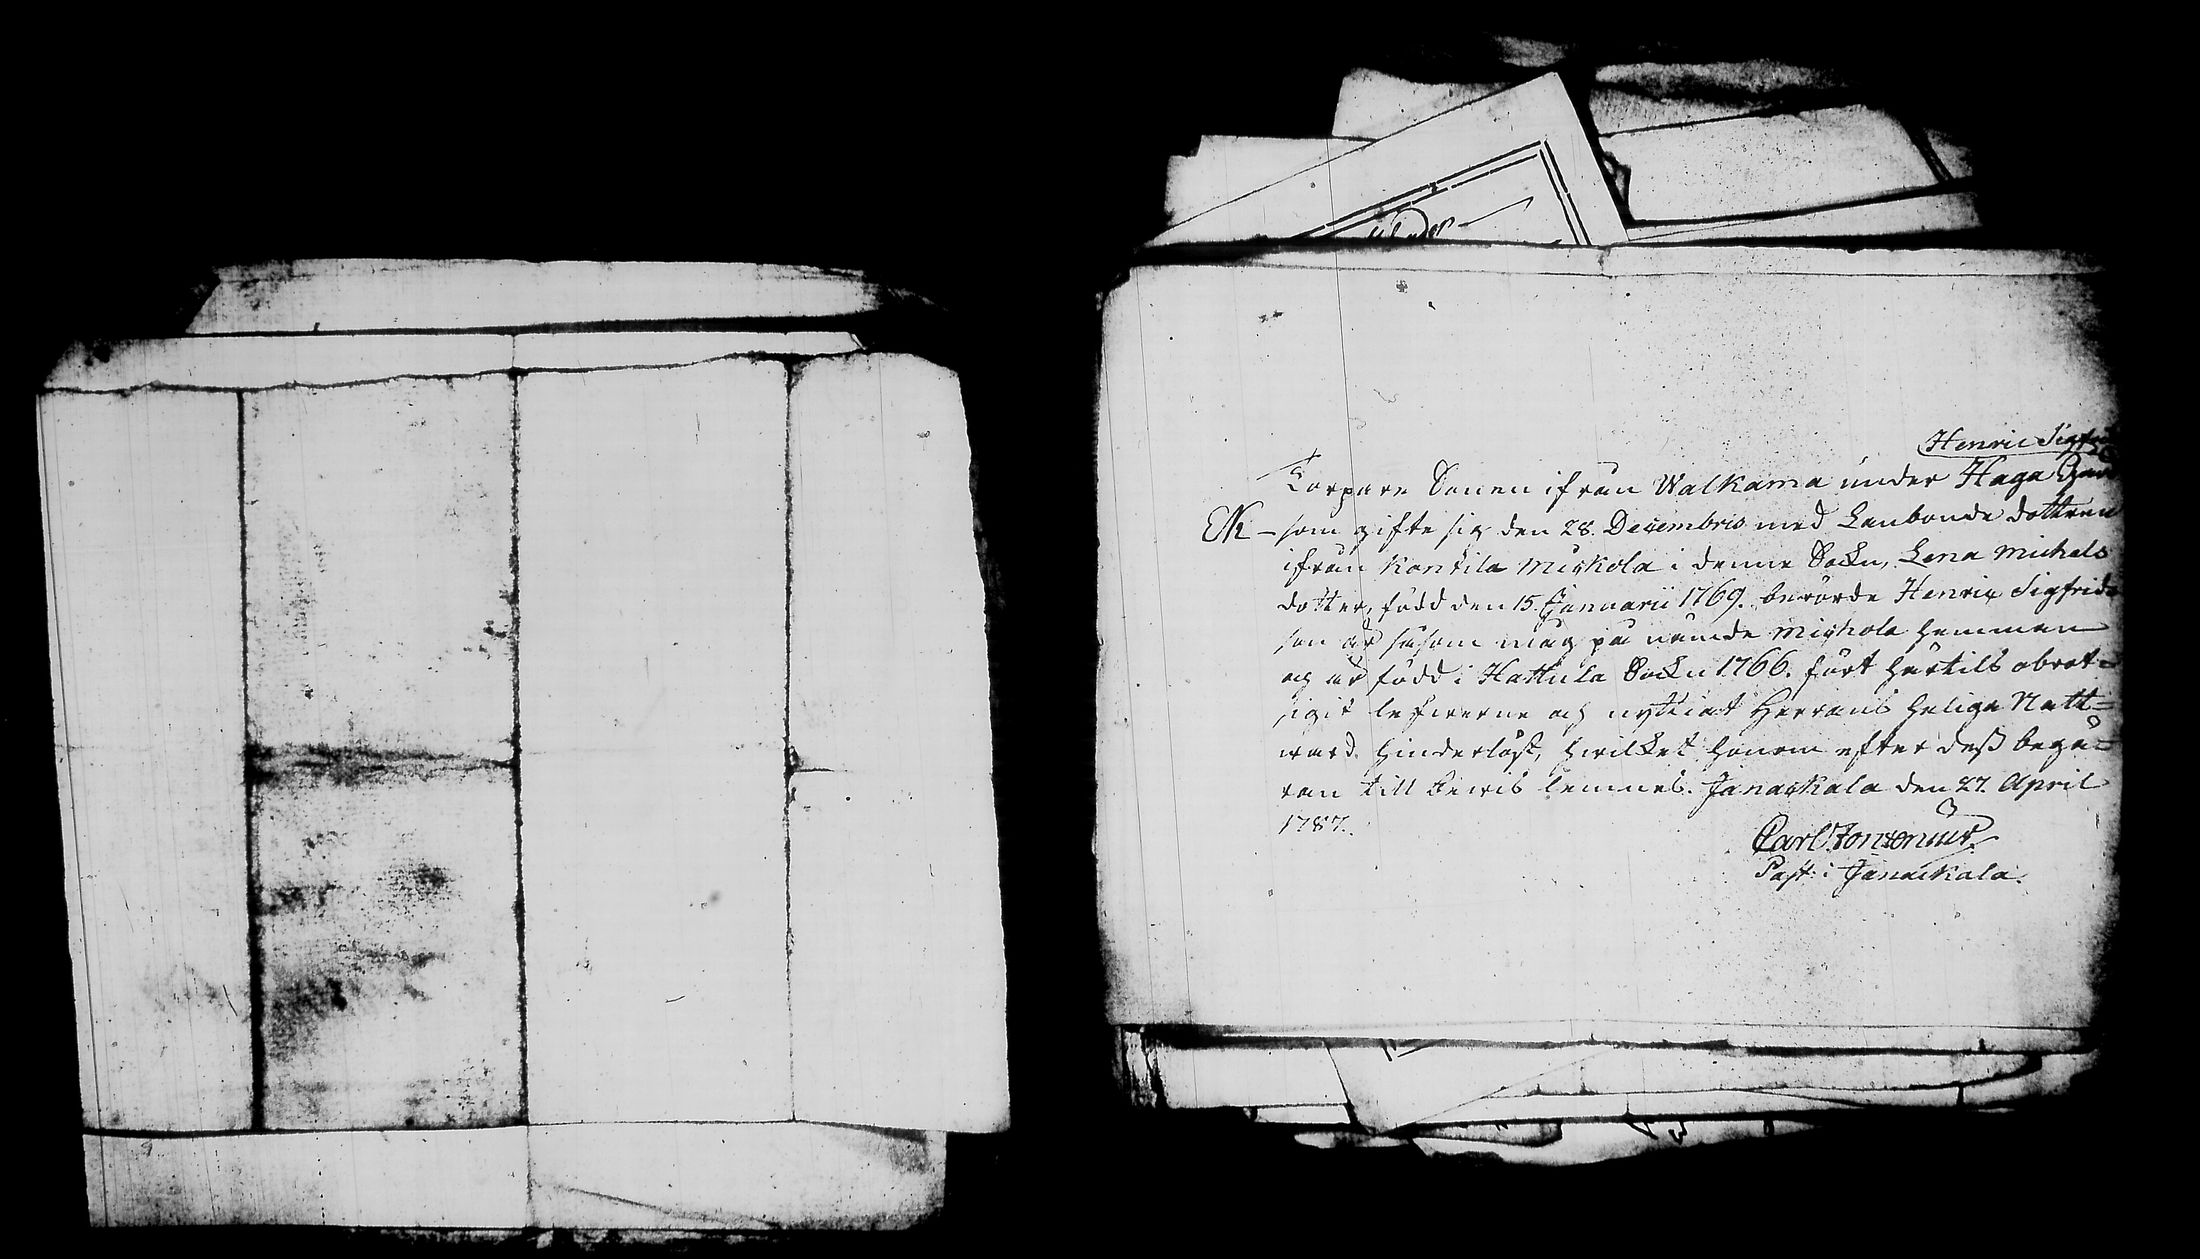 Henric Sigfrids
Torpare Sonen ifrån Walkama under Haga Gård
EK - som gifte sig den 28. Decembris med Lanbonde dottren
ifrån Kontila Miskola i denne Sockn, Lena Michels
dotter, född den 15. Januarii 1769. berörde Henric Sigfrids
son är såsom måg på nämde Miskola Hemman
og är född i Hattula Sockn 1766. fört härtils obrot=
sigit lefwerne och nyttiat Herrans Helige Natt=
ward hinderlöst, hwilket honom efter dess begä=
ran till bewis lemnes. Janackala den 27. April
1787.
Carl
Past: i Janackala.